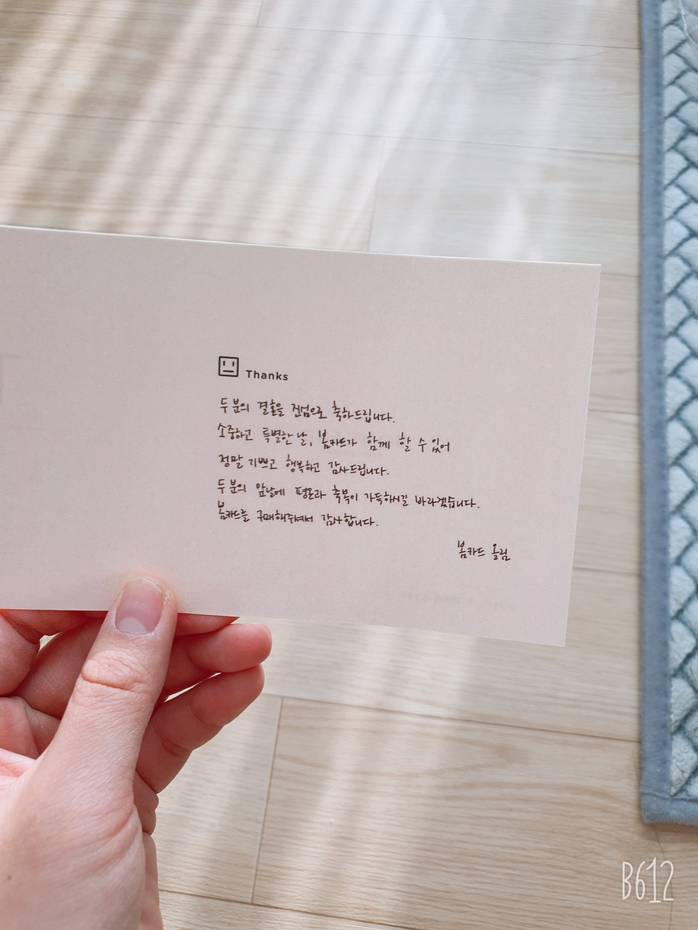 Thanks
두 분의 결혼을 진심으로 축하드립니다.
소중하고 특별한 날, 봄카드가 함께 할 수 있어
정말 기쁘고 행복하고 감사드립니다.
두 분의 앞날에 평온과 축복이 가득하시길 바라겠습니다.
봄카드를 구매해주셔서 감사합니다.
봄카드 올림
B612